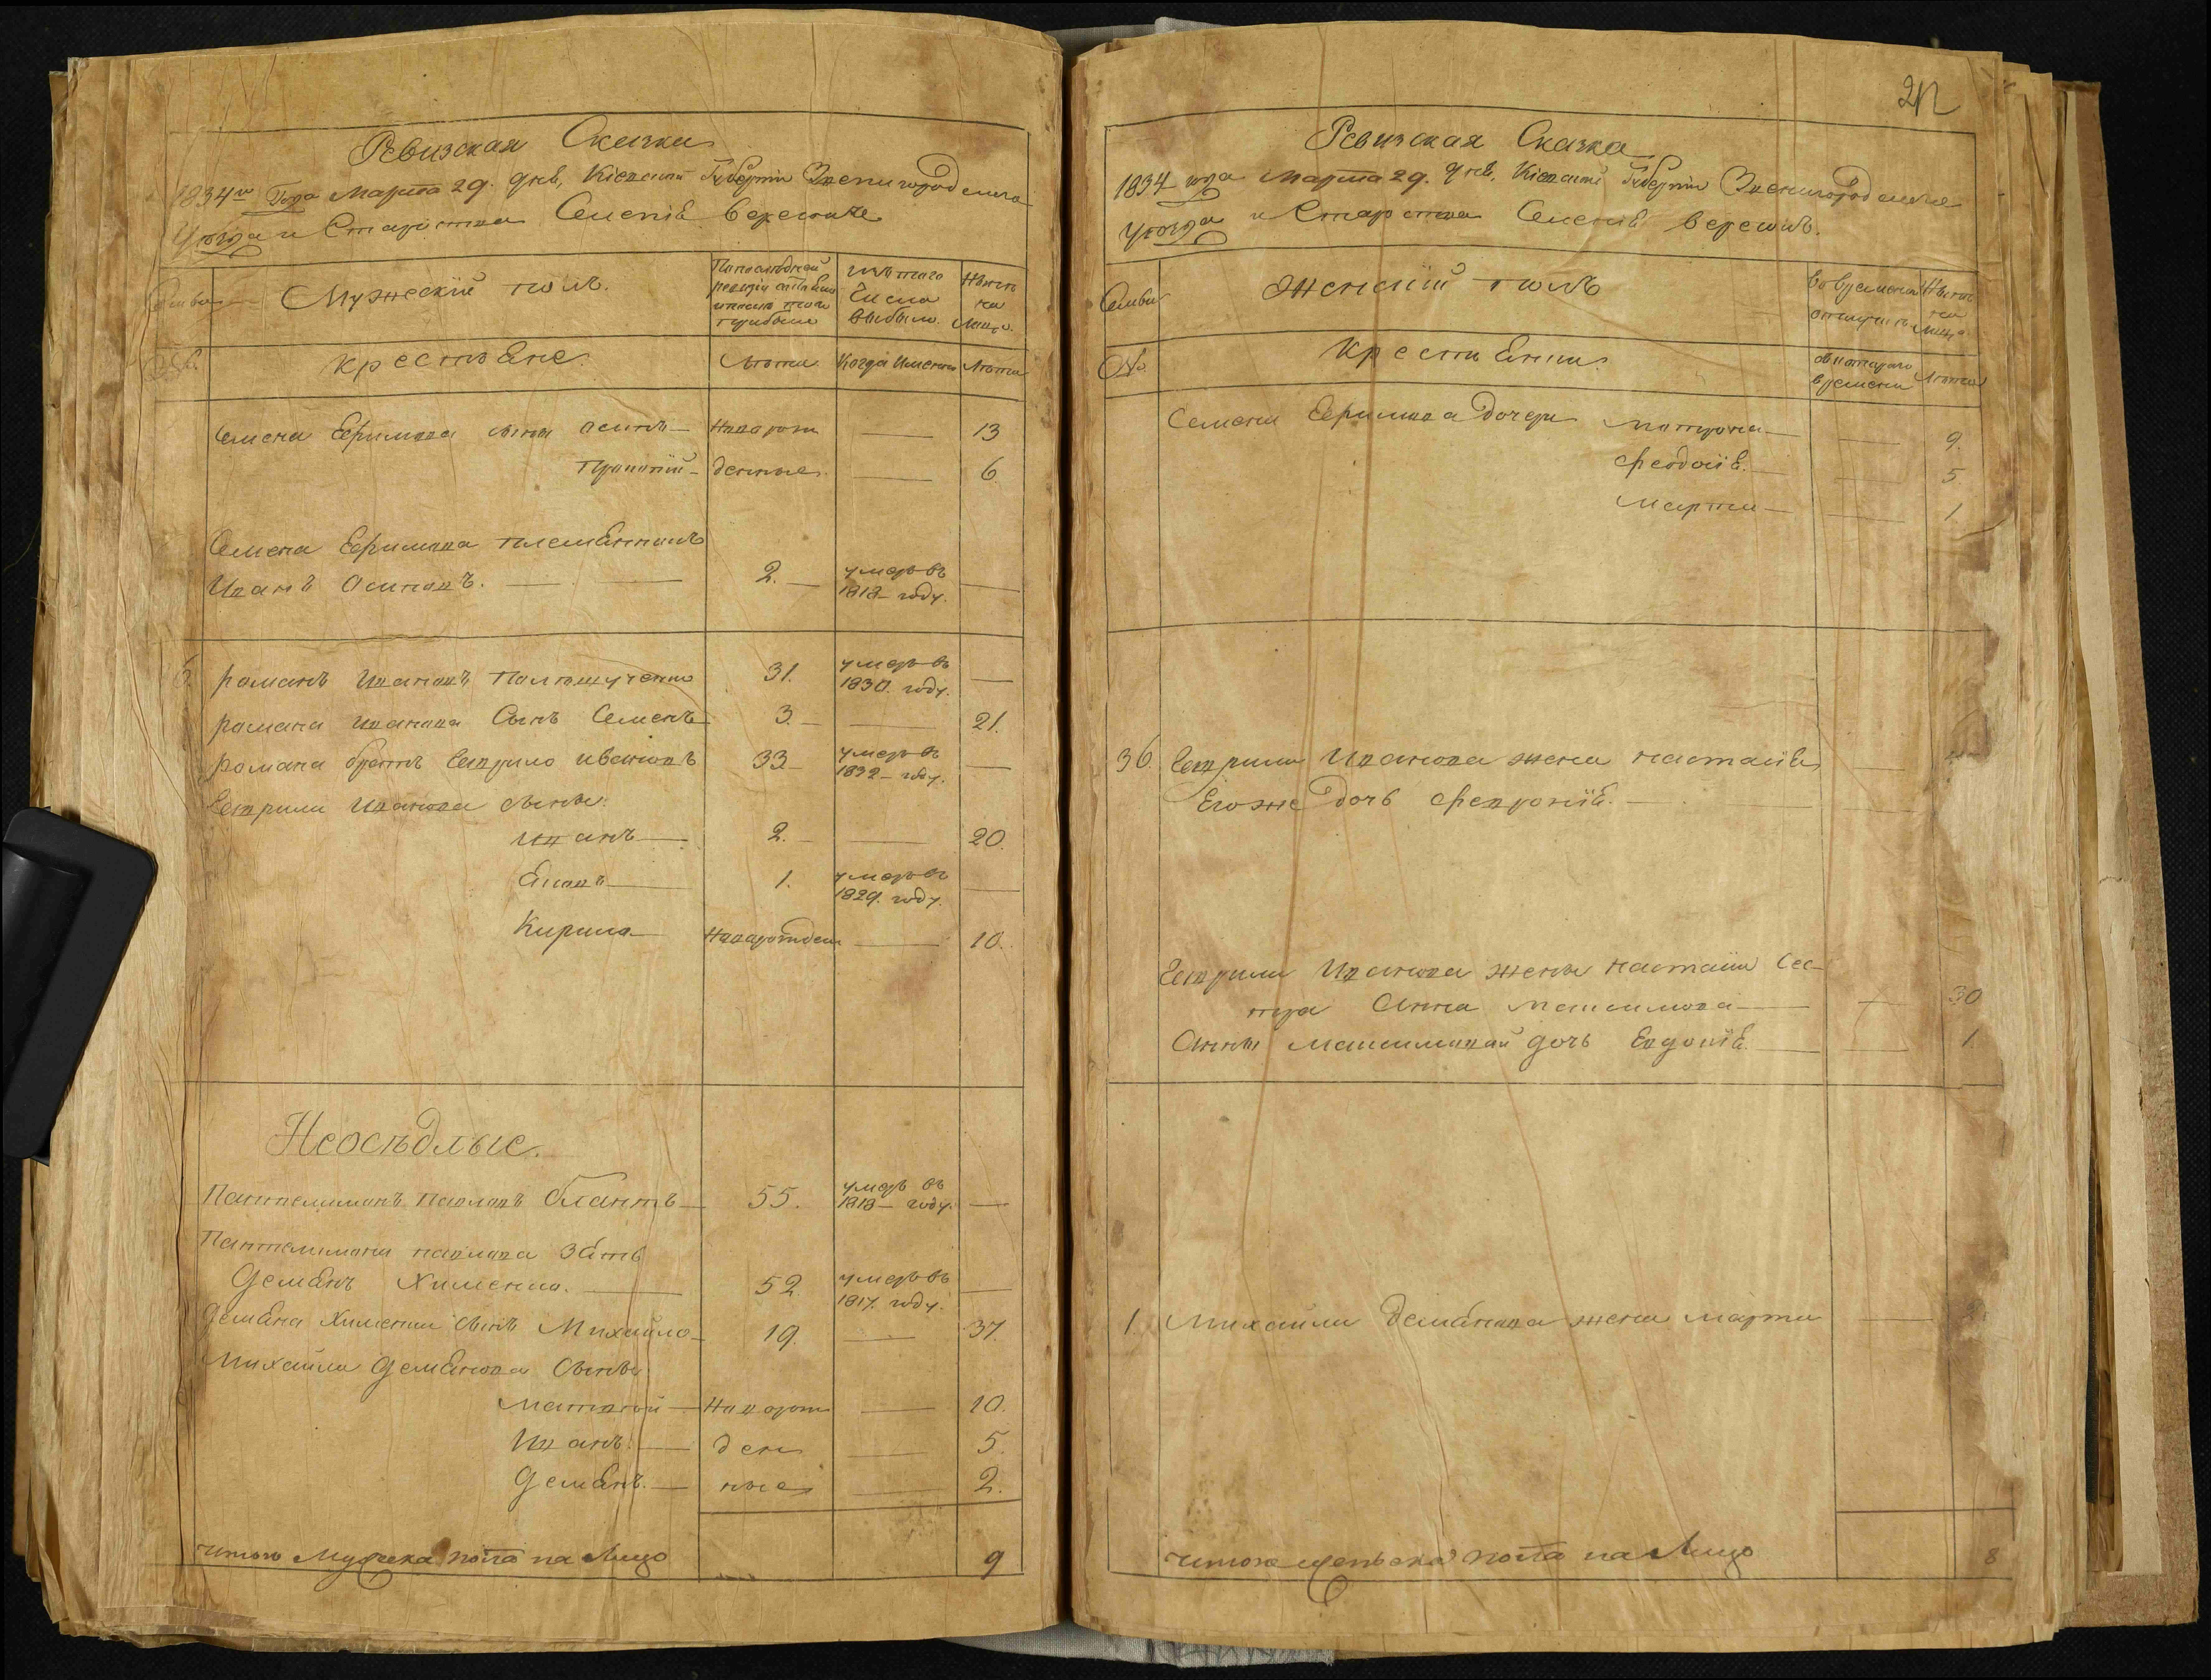 Ревизская Сказка
1834го Года Марта 29. дня, Кіевской Губерніи Звенигородскаго
Уѣзда и Староства Селенія
Семьи
Мужескій полъ.
По последней ревизіи состояло и после того прибыло
Изъ того Числа выбыло.
Нынѣ на Лицо.
№
крестьяне.
Лѣта
Когда Именно
Лѣта
Семена Ефимова сыны осипъ — Новорож — 13
Прокопій — денные. — 6
Семена Ефимова племянникъ
Иванъ Осиповъ. — 2. — умеръ въ 1818 — году. —
романъ Ивановъ 31. умеръ въ 1830. году. —
романа Иванова Сынъ Семенъ 3. — 21.
романа братъ Гаврило ивановъ 33 — умеръ въ 1832 — году. —
Гаврили Иванова сыны:
Иванъ — 2. — 20.
Яковъ — 1. умеръ въ 1829. году. —
Кирило — Новорожден — 10.
Неосѣдлые.
Пантелимонъ павловъ 55. умеръ въ 1818 — году. —
Пантелимона павлова зять
Демянъ Хименко. — 52. умеръ въ 1817. году. —
Демяна Хименка сынъ Михайло — 19. — 37.
Михайла Демянова Сыны
Матвей — Новорож — 10.
Иванъ. — ден — 5.
Демянъ. — ные — 2.
Итого Мужеска пола на Лицо 9
212
Ревизская Сказка
1834 года Марта 29. дня, Кіевской Губерніи Звенигородскаго
Уѣзда и Староства Селенія
Семьи
Женскій полъ
Во временной отлучкѣ
Нынѣ на Лицо.
№
Крестьянки.
съ котораго времени
Лѣта
Семена Ефимова дочери матрона — 9.
феодосія. — 5
Марта — 1.
36. Гаврили Иванова жена настасія —
Его же дочь февронія. —
Гаврили Иванова жены настасіи сес-
тра Анна Максимова — 30
Анны Максимовой дочь Евдокія. — 1
1. Михайла Демянова жена марта —
Итого женска пола на Лицо 8